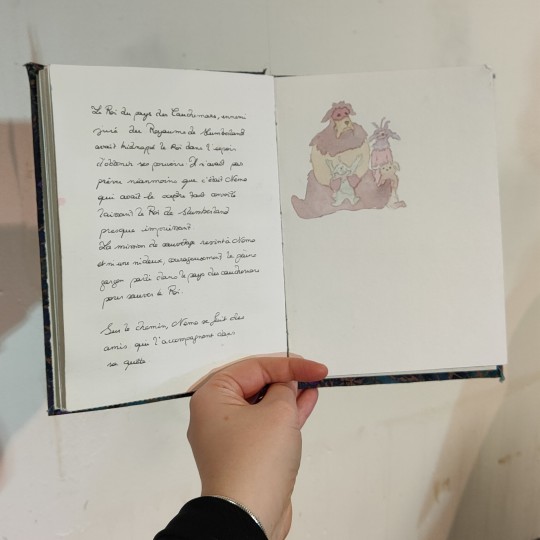 Le Roi du pays des Cauchemars, ennemi
juré des Royaume de Slumberland
avait kidnappé le Roi dans l'espoir
d'obtenir ses pouvoirs. Il n'avait pas
prévu néanmoins que c'était Nemo
qui avait le sceptre tant convoité
laissant le Roi de Slumberland
presque impuissant
La mission de sauvetage revint à Nemo
et ni une ni deux, courageusement le jeune
garçon partit dans le pays des cauchemars
pour sauver le Roi.
Sur le chemin, Nemo se fait des
amis qui l'accompagnent dans
sa quête